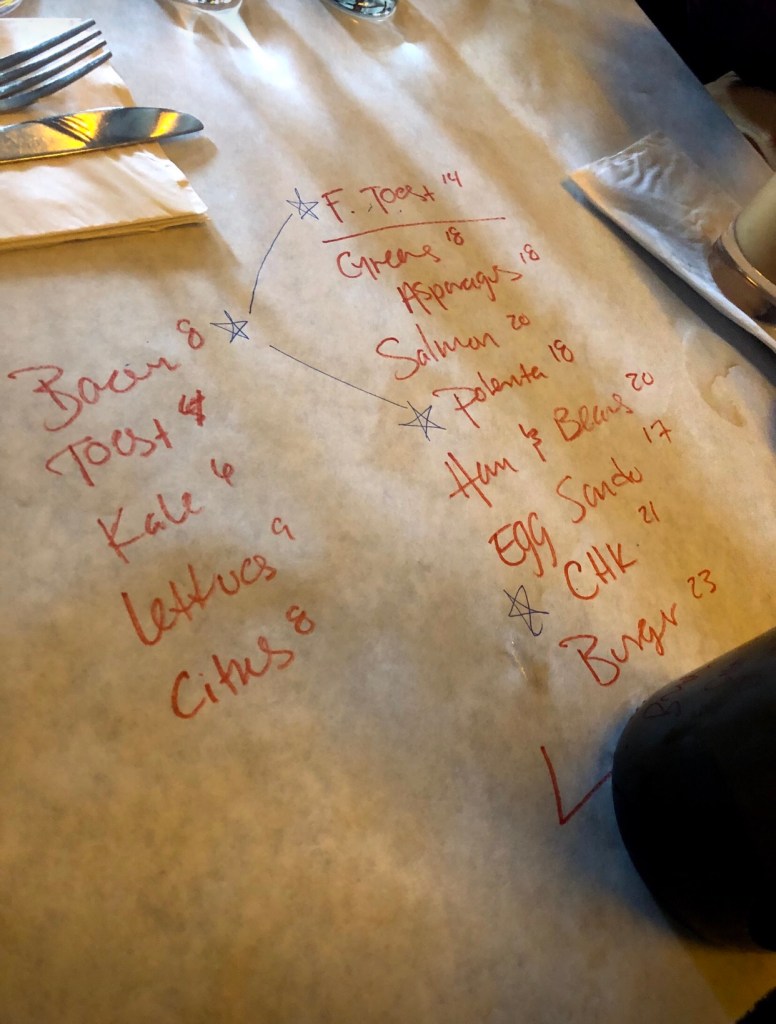 F. Toast 14
Greens 18
Asparagus 18
Salmon 20
Polenta 18
Ham & Beans 20
Egg Sando 17
CHK 21
Burger 23
Bacon 8
Toast 4
Kale 6
Lettuces 9
Citrus 8